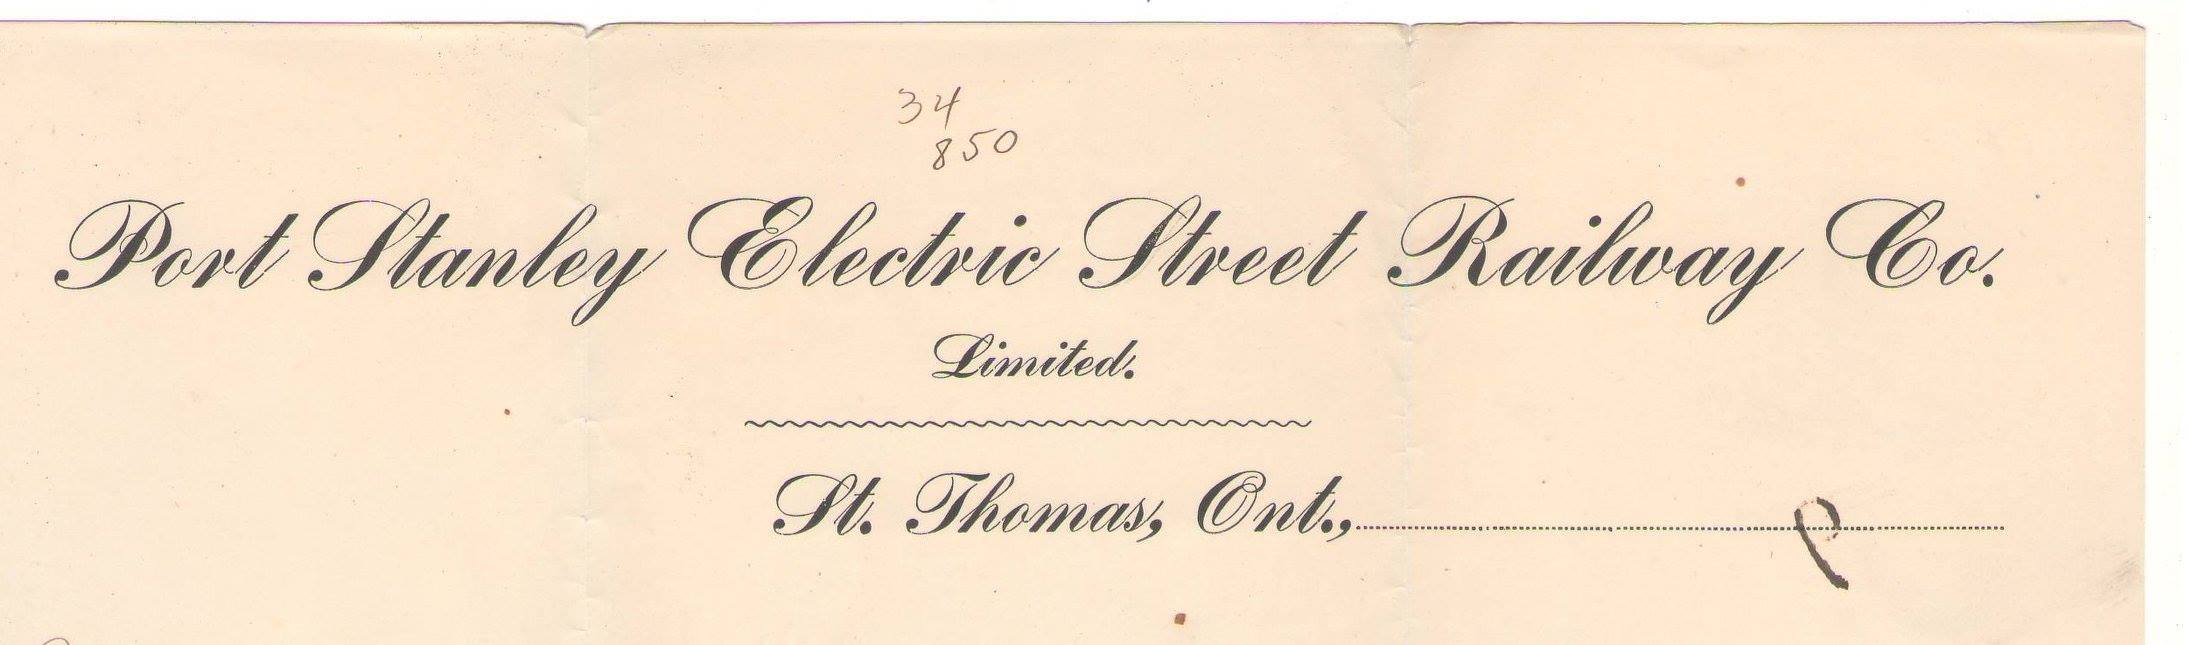 34
850
Port Stanley Electric Street Railway Co.
Limited.
St. Thomas, Ont.,